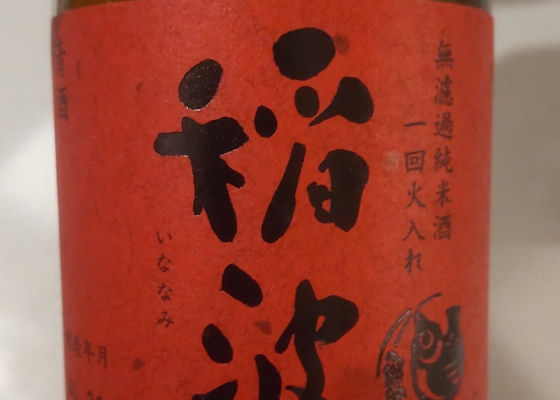 無濾過純米酒
一回火入れ
稲波
いななみ
清酒
年月